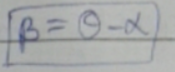 β = θ - α